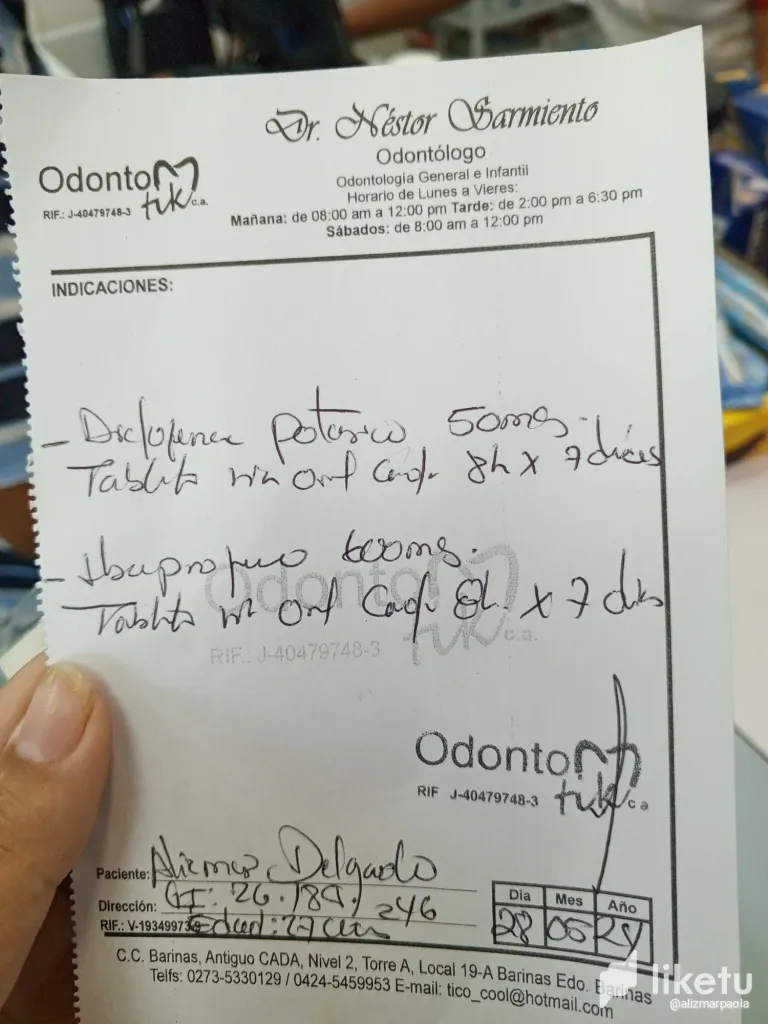 Dr. Néstor Sarmiento
Odontólogo
Odontologia General e Infantil
Horario de Lunes a Vieres:
Mañana: de 08:00 am a 12:00 pm Tarde: de 2:00 pm a 6:30 pm
Sábados: de 8:00 am a 12:00 pm
Odonto
tik c.a.
RIF.: J-40479748-3
INDICACIONES:
- Diclofenac potasico 50mg.
Tableta vía Oral Cada 8h x 7 días
- Ibuprofeno 600mg.
Tableta vía Oral Cada 8h. x 7 días
Odonto
tik c.a.
RIF.: J-40479748-3
Odonto
tik c a
RIF J-40479748-3
Paciente: Delgado
Dirección: CI: 26.789.246
RIF.: V-19349973 Edad: 27
Día Mes Año
28 05 24
C.C. Barinas, Antiguo CADA, Nivel 2, Torre A, Local 19-A Barinas Edo. Barinas
Telfs: 0273-5330129 / 0424-5459953 E-mail: tico_cool@hotmail.com
liketu
@alizmarpaola